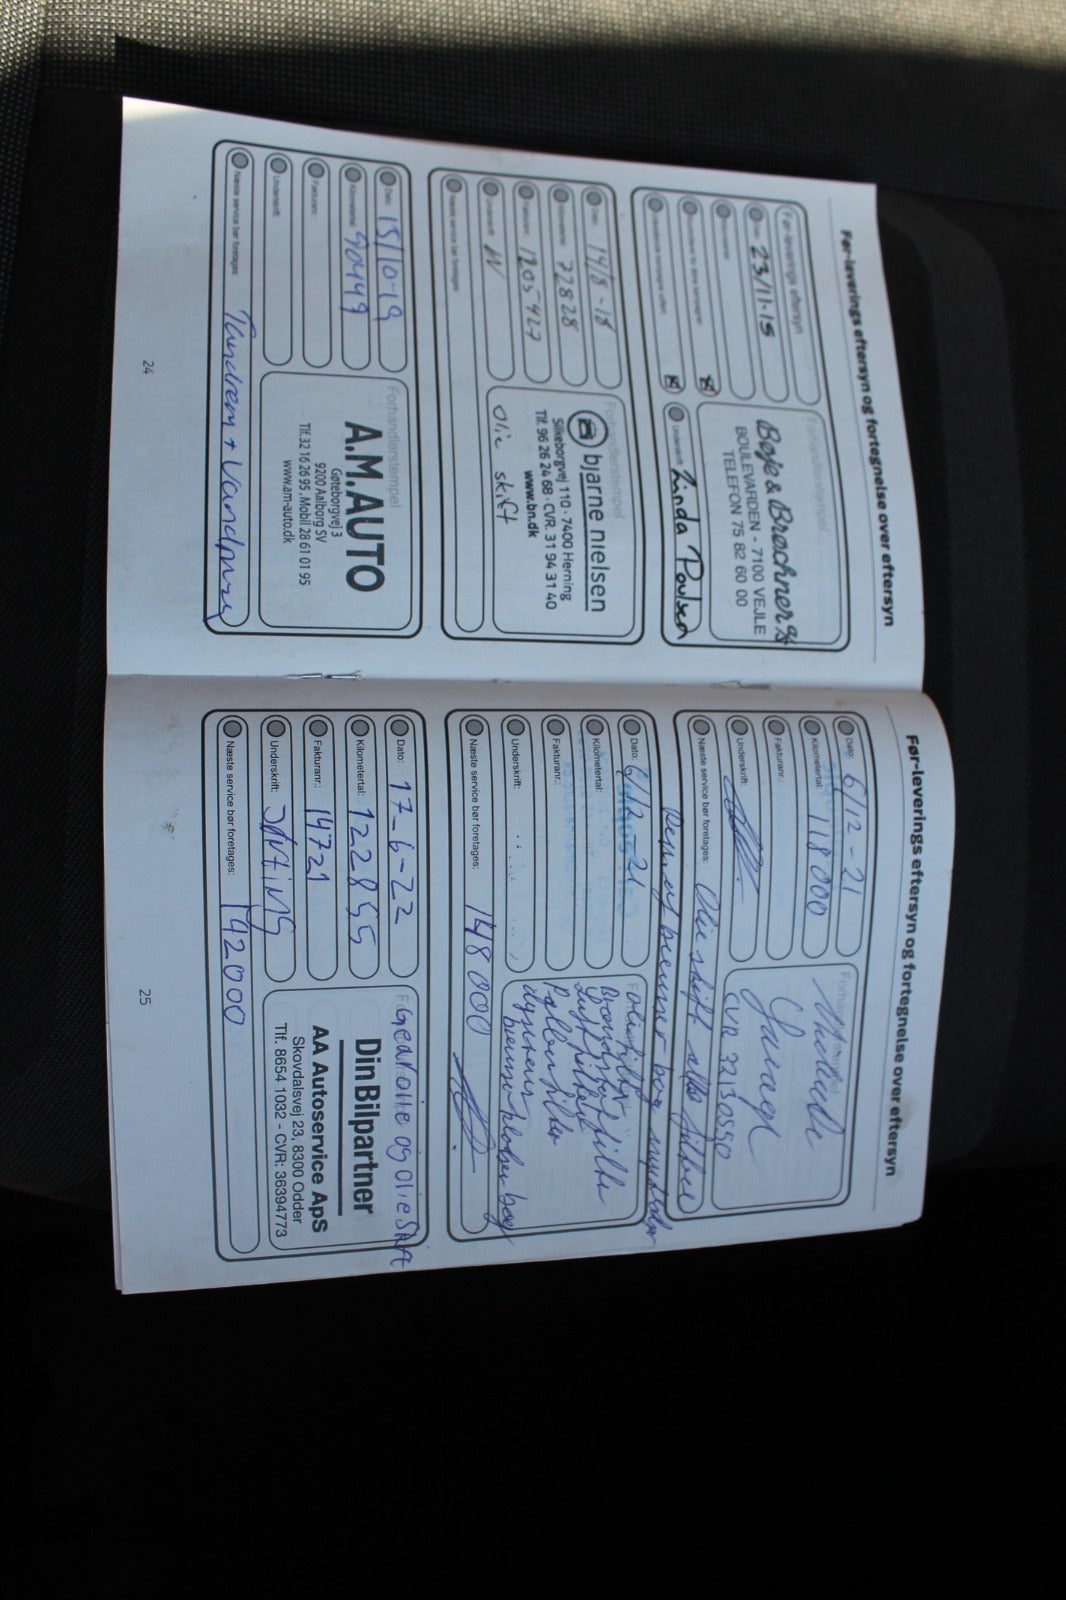 Før-leverings eftersyn og fortegnelse over eftersyn
Før-leverings eftersyn
Dato: 23/11-15
Forhandlerstempel
Boje & Brøchner A/S
BOULEVARDEN - 7100 VEJLE
TELEFON 75 82 60 00
Underskrift: Linda Poulsen
Dato: 14/8-18
Kilometertal: 72828
Fakturanr.: 1205427
Underskrift:
Næste service bør foretages:
Forhandlerstempel
bjarne nielsen
Silkeborgvej 110 · 7400 Herning
Tlf. 96 26 24 68 · CVR. 31 94 31 40
www.bn.dk
olie skift
Dato: 15/10-19
Kilometertal: 90449
Fakturanr.:
Underskrift:
Næste service bør foretages: Tandrem + Vandpump
Forhandlerstempel
A.M.AUTO
Gøteborgvej 3
9200 Aalborg SV
Tlf. 32 16 26 95 . Mobil 28 61 01 95
www.am-auto.dk
24
Før-leverings eftersyn og fortegnelse over eftersyn
Dato: 6/12-21
Kilometertal: 118000
Fakturanr.:
Underskrift:
Næste service bør foretages: Olie skift alle filtre
CVR 32130550
Dato: 6/12-21
Kilometertal:
Fakturanr.:
Underskrift:
Næste service bør foretages: 148000
oliefilter
Brændstoffilter
Luftfilter
Pollenfilter
Dato: 17-6-22
Kilometertal: 122855
Fakturanr.: 14721
Underskrift:
Næste service bør foretages: 142000
Gearolie og olie skift
Din Bilpartner
AA Autoservice ApS
Skovdalsvej 23, 8300 Odder
Tlf. 8654 1032 - CVR: 36394773
25